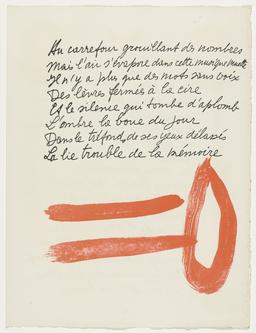 Au carrefour grouillant des nombres
Mais l'air s'évapore dans cette musique muette
Il n'y a plus que des mots sans voix
Des lèvres fermées à la cire
Et le silence qui tombe d'aplomb
L'ombre la boue du jour
Dans le tréfond de ses yeux délassés
La lie trouble de la mémoire